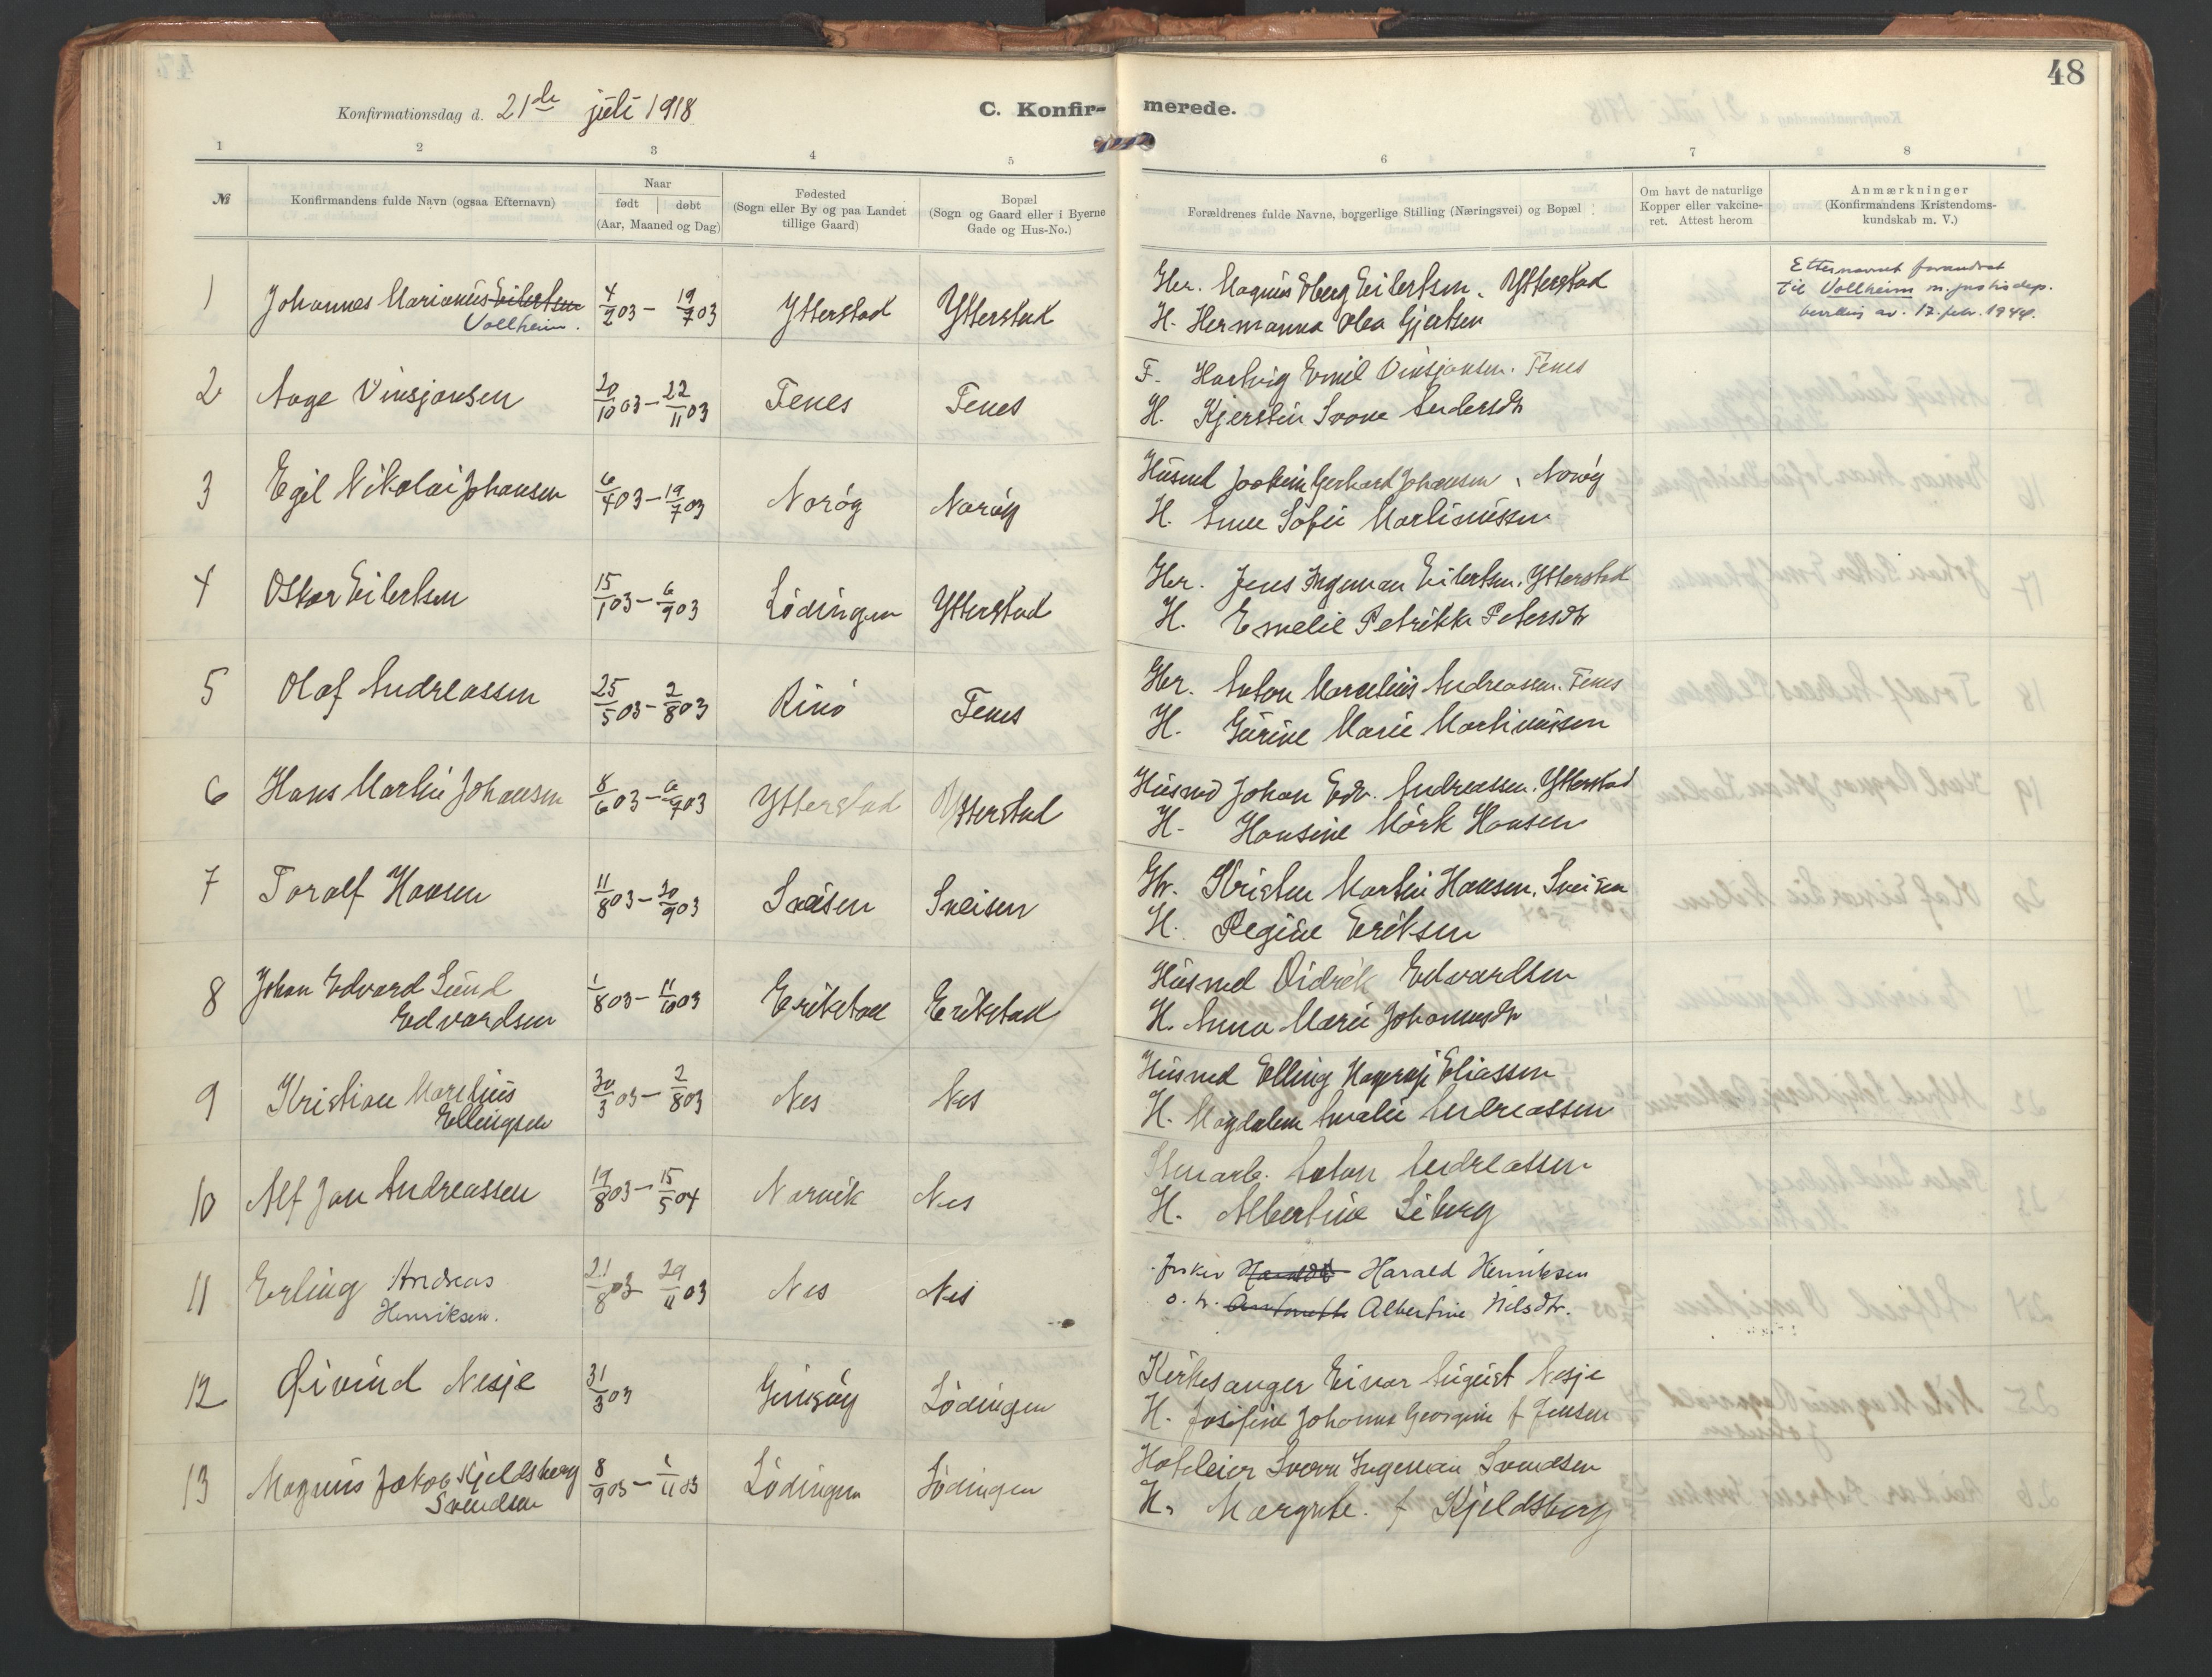 48
Konfirmationsdag d. 21de juli 1918
C. Konfir- merede.
1 2 3 4 5 6 7 8
№
Konfirmandens fulde Navn (ogsaa Efternavn)
Naar
født | døbt
(Aar, Maaned og Dag)
Fødested
(Sogn eller By og paa Landet
tillige Gaard)
Bopæl
(Sogn og Gaard eller i Byerne
Gade og Hus-No.)
Forældrenes fulde Navne, borgerlige Stilling (Næringsvei) og Bopæl
Om havt de naturlige
Kopper eller vakcine-
ret. Attest herom
Anmærkninger
(Konfirmandens Kristendoms-
kundskab m. V.)
1 Johannes Marianus Eilertsen 4/2 03 – 19/7 03 Ytterstad Ytterstad
Vollheim.
Gbr. Magnus Eilertsen. Ytterstad
H. Hermanna Olea Gjertsen
Etternavnet forandret
til Vollheim m. justisdep.
bevilling av. 17. febr. 1944.
2 Aage Vinsjansen 20/10 03 – 22/11 03 Fenes Fenes
F. Hartvig Emil Vinsjansen. Fenes
H. Kjerstin Andersdtr
3 Egil Nikolai Johansen 6/4 03 – 19/7 03 Norøy Norøy
Husmd Joakim Gerhard Johansen, Norøy
H. Anne Sofie Martinussen
4 Oskar Eilertsen 15/1 03 – 6/9 03 Lødingen Ytterstad
Gbr. Jens Ingeman Eilertsen, Ytterstad
H. Emelie Petrikke Petersdtr
5 Olaf Andreassen 25/5 03 – 2/8 03 Rinø Fenes
Gbr. Anton Marselius Andreassen. Fenes
H. Gurine Marie Martinussen
6 Hans Martin Johansen 8/6 03 – 6/9 03 Ytterstad Ytterstad
Husmd Johan Edv. Andreassen. Ytterstad
H. Hansine Mørk Hansen
7 Toralf Hansen 11/8 03 – 20/9 03 Sneisen Sneisen
Gbr. Kristen Martin Hansen, Sneisen
H. Regine Eriksen
8 Johan Edvard Lund 1/8 03 – 11/10 03 Erikstad Erikstad
Edvardsen
Husmd Didrik Edvardsen
H. Anna Marie Johannesdtr
9 Kristian Marelius 30/3 03 – 2/8 03 Nes Nes
Ellingsen
Husmd Elling Eliassen
H. Magdalena Amalie Andreassen
10 Alf Jan Andreassen 19/8 03 – 15/5 04 Narvik Nes
Stenarb. Anton Andreassen
H. Albertine Siberg
11 Erling Andreas 21/8 03 29/11 03 Nes Nes
Henriksen.
fisker Harald Henriksen
o. h. Albertine Nilsdtr.
12 Øivind Nesje 31/3 03 Gimsøy Lødingen
Kirkesanger Einar August Nesje
H. Josefine Johanne Georgine f Jensen
13 Magnus Jakob Kjeldsberg 8/9 03 – 1/11 03 Lødingen Lødingen
Svendsen
Hoteleier Ingeman Svendsen
H. Margrete. f Kjeldsberg